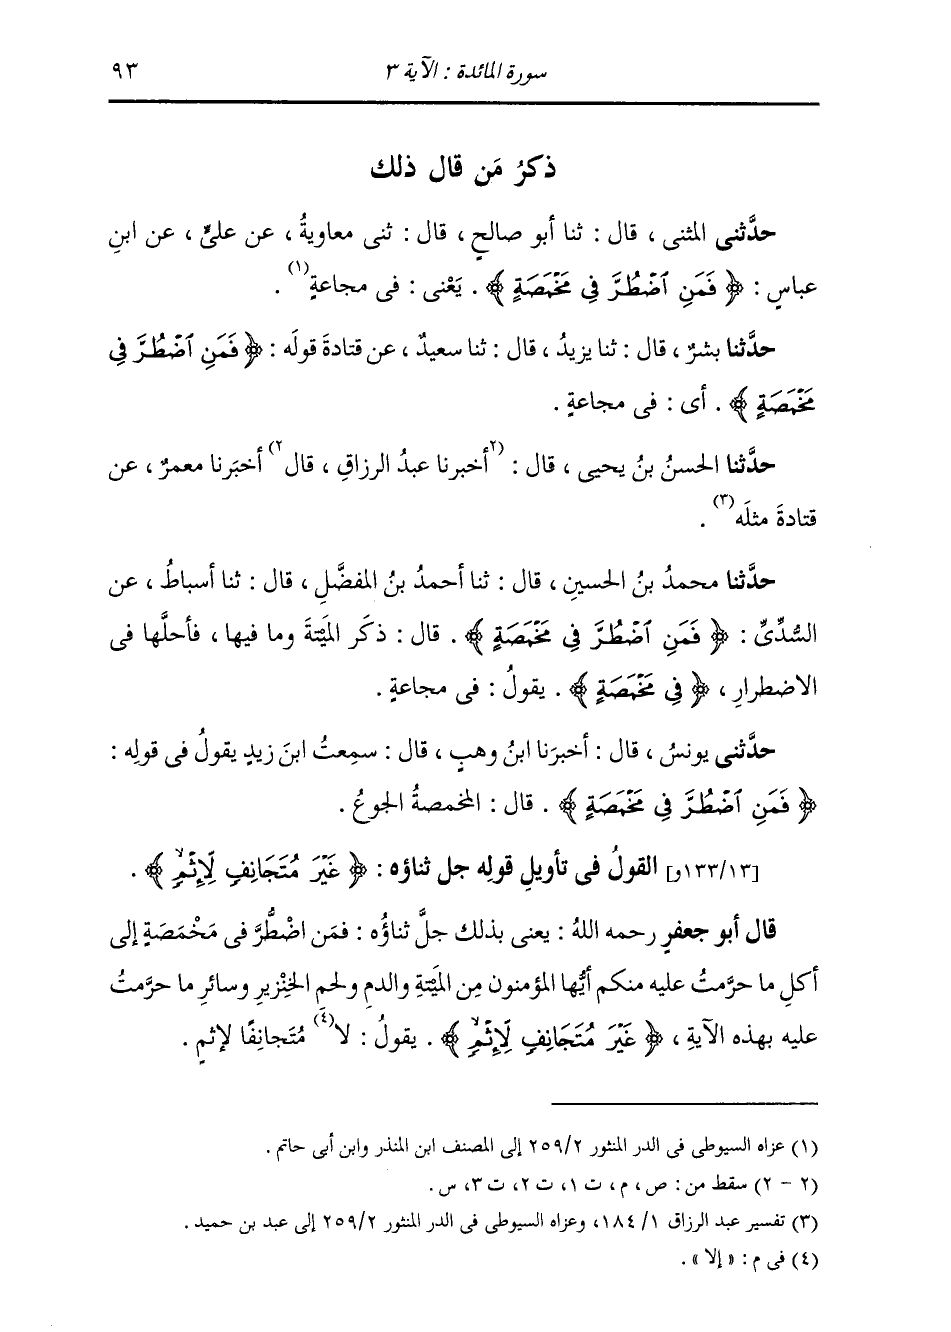 سورة المائدة : الآية ٣ ٩٣
ذكرُ مَن قال ذلك
حدَّثنى المثنى ، قال : ثنا أبو صالحٍ ، قال : ثنى معاويةُ ، عن علىٍّ ، عن ابنِ
عباسٍ : ﴿ فَمَنِ ٱضْطُرَّ فِى مَخْمَصَةٍ ﴾ . يَعْنى : فى مجاعةٍ(١) .
حدَّثنا بشرٌ ، قال : ثنا يزيدُ ، قال : ثنا سعيدٌ ، عن قتادةَ قولَه : ﴿ فَمَنِ ٱضْطُرَّ فِى
مَخْمَصَةٍ ﴾ . أى : فى مجاعةٍ .
حدَّثنا الحسنُ بنُ يحيى ، قال : (٢أخبرنا عبدُ الرزاقِ ، قال٢) أخبَرنا معمرٌ ، عن
قتادةَ مثلَه(٣) .
حدَّثنا محمدُ بنُ الحسينِ ، قال : ثنا أحمدُ بنُ المفضَّلِ ، قال : ثنا أسباطُ ، عن
السُّدِّىِّ : ﴿ فَمَنِ ٱضْطُرَّ فِى مَخْمَصَةٍ ﴾ . قال : ذكَر المَيْتةَ وما فيها ، فأحلَّها فى
الاضطرارِ ، ﴿ فِى مَخْمَصَةٍ ﴾ . يقولُ : فى مجاعةٍ .
حدَّثنى يونسُ ، قال : أخبرَنا ابنُ وهبٍ ، قال : سمِعتُ ابنَ زيدٍ يقولُ فى قولِه :
﴿ فَمَنِ ٱضْطُرَّ فِى مَخْمَصَةٍ ﴾ . قال : المخمصةُ الجوعُ .
[١٣٣/١٣و] القولُ فى تأويلِ قولِه جل ثناؤه : ﴿ غَيْرَ مُتَجَانِفٍ لِّإِثْمٍ ۙ ﴾ .
قال أبو جعفرٍ رحمه اللهُ : يعنى بذلك جلَّ ثناؤُه : فمَن اضْطُّرَّ فى مَخْمَصَةٍ إلى
أكلِ ما حرَّمتُ عليه منكم أيُّها المؤمنون مِن المَيْتةِ والدمِ ولحمِ الخِنْزيرِ وسائرِ ما حرَّمتُ
عليه بهذه الآيةِ ، ﴿ غَيْرَ مُتَجَانِفٍ لِّإِثْمٍ ۙ ﴾ . يقولُ : لا(٤) مُتَجانِفًا لإثمٍ .
(١) عزاه السيوطى فى الدر المنثور ٢٥٩/٢ إلى المصنف ابن المنذر وابن أبى حاتم .
(٢ - ٢) سقط من : ص ، م ، ت ١، ت ٢، ت ٣، س .
(٣) تفسير عبد الرزاق ١/ ١٨٤، وعزاه السيوطى فى الدر المنثور ٢٥٩/٢ إلى عبد بن حميد .
(٤) فى م : « إلا » .